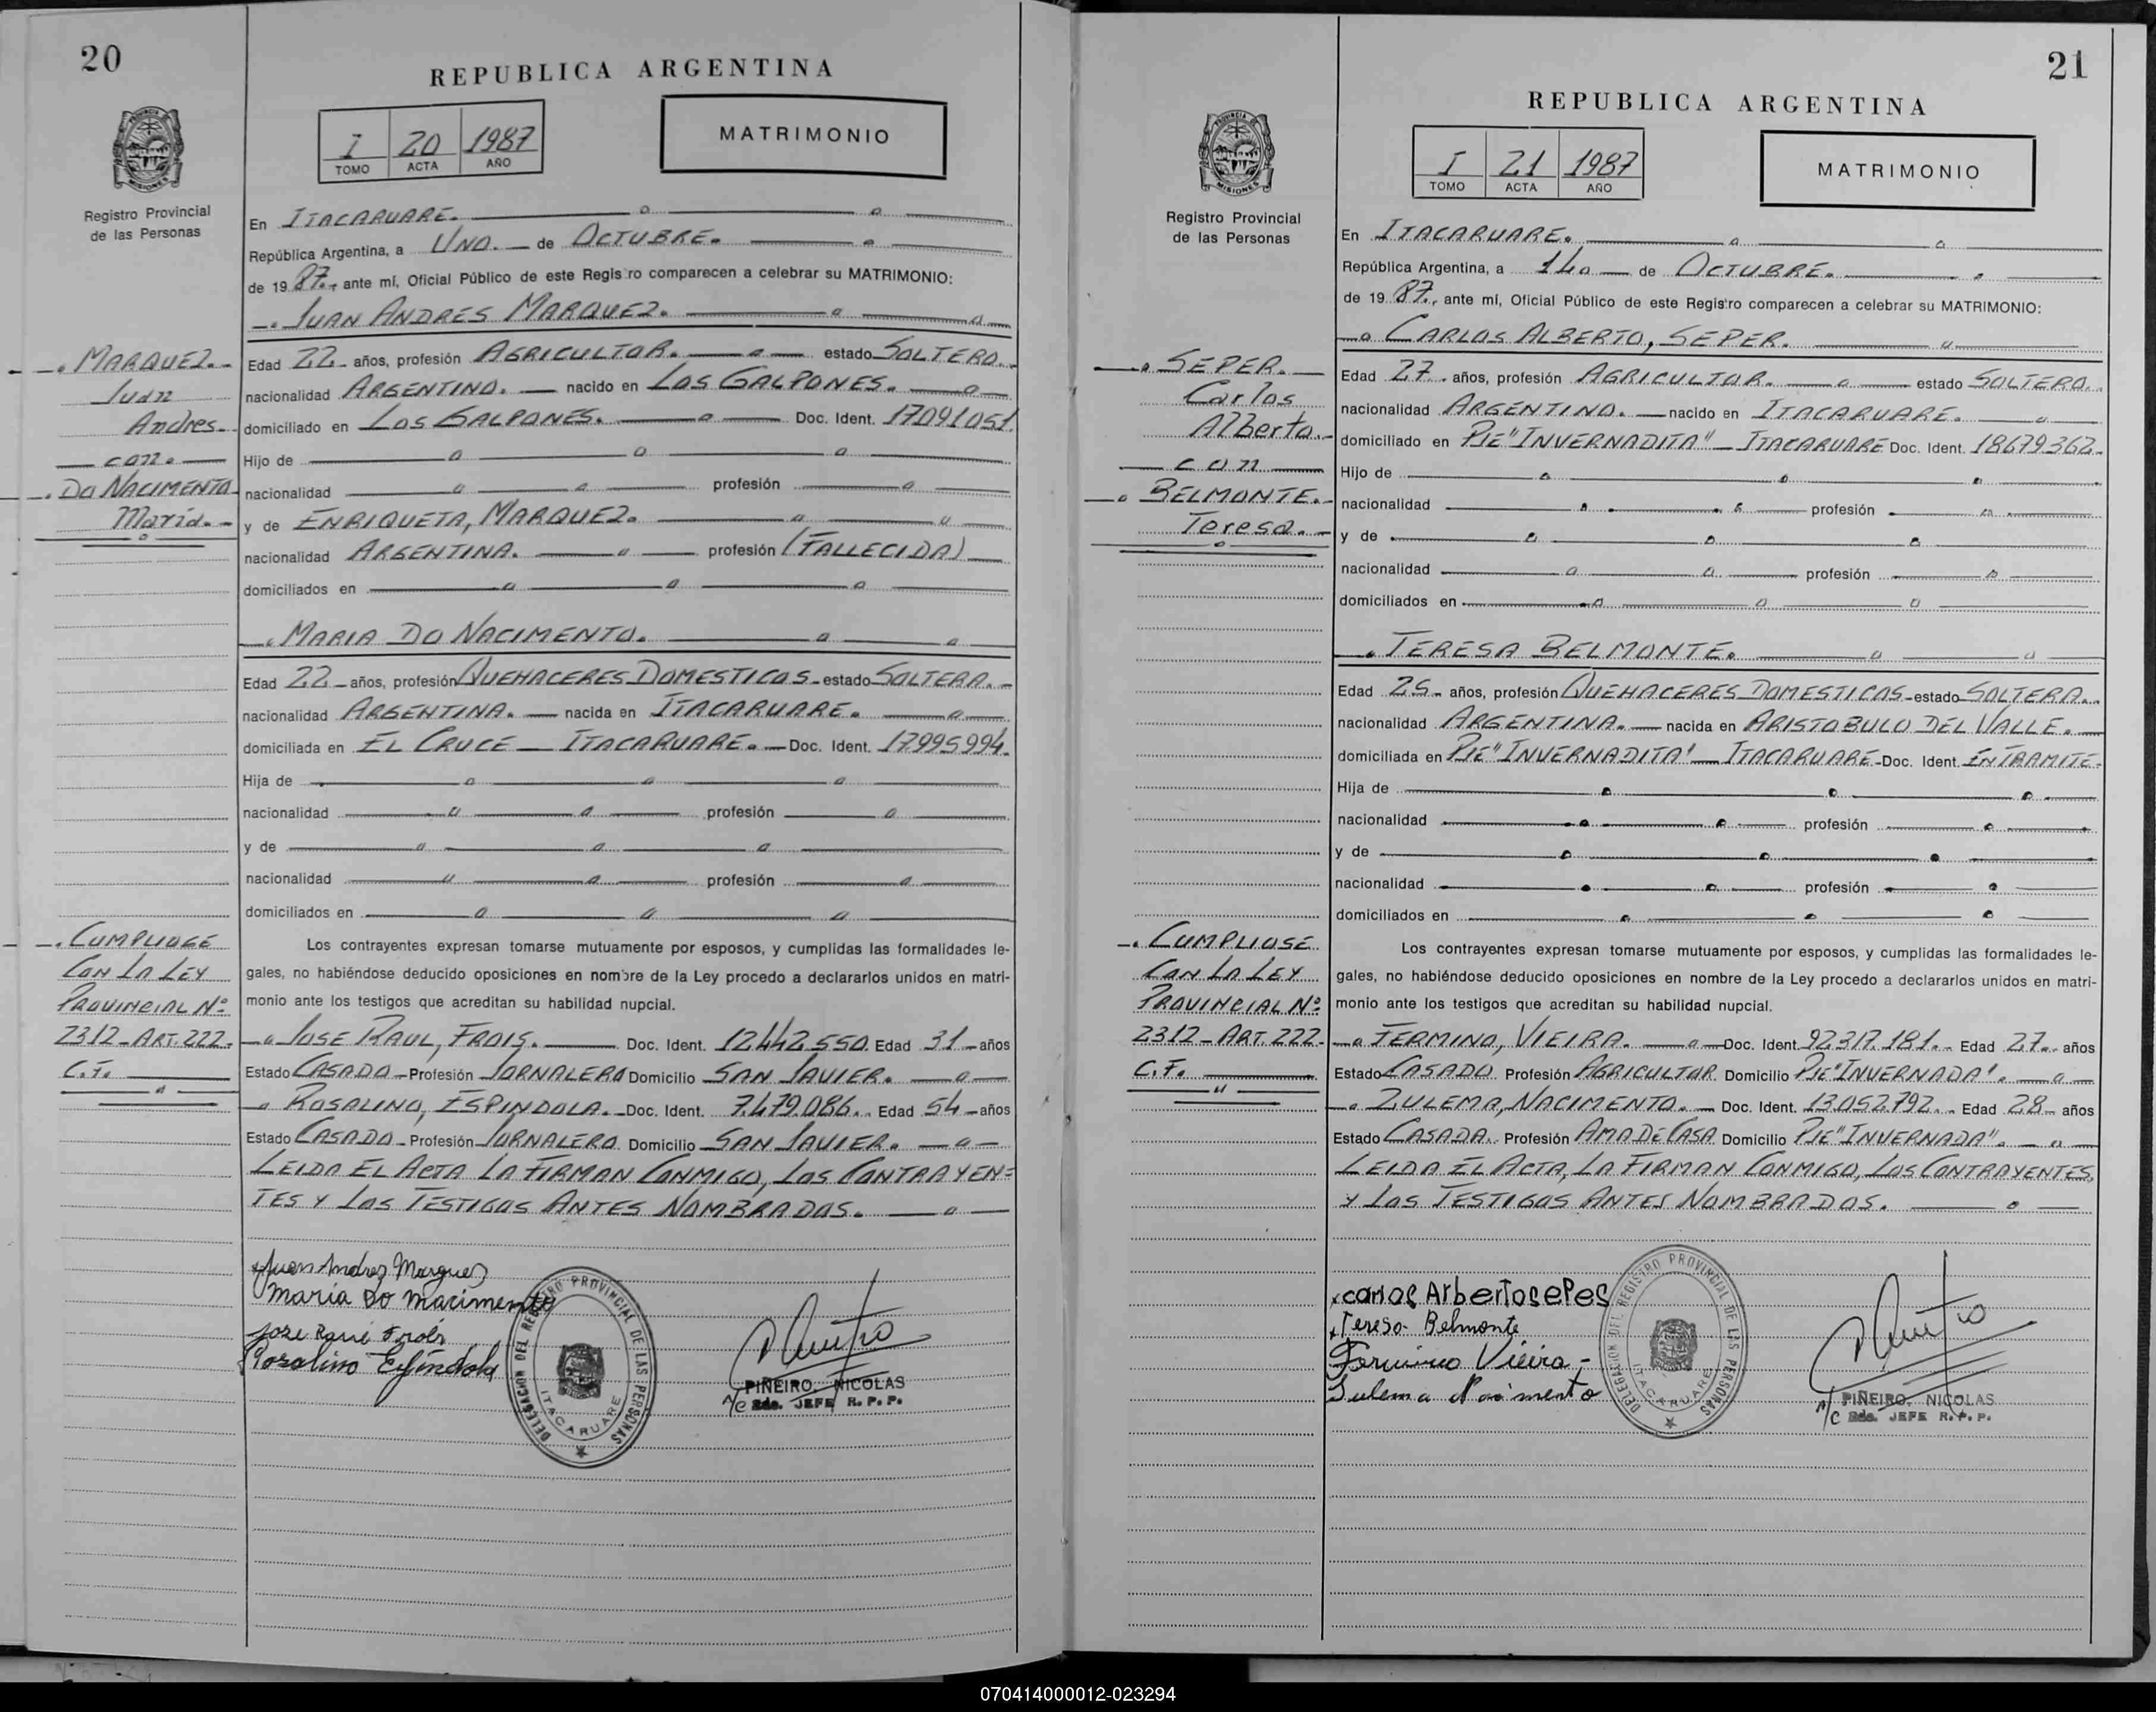 20
REPUBLICA ARGENTINA
PROVINCIA DE MISIONES
Registro Provincial
de las Personas
I 20 1987
TOMO ACTA AÑO
MATRIMONIO
En ITACARUARE.
República Argentina, a UNO. de OCTUBRE.
de 1987., ante mí, Oficial Público de este Registro comparecen a celebrar su MATRIMONIO:
JUAN ANDRES MARQUEZ.
MARQUEZ.
Juan
Andres.
con.
DO NACIMENTO
María.
Edad 22 años, profesión AGRICULTOR. estado SOLTERO.
nacionalidad ARGENTINO. nacido en LOS GALPONES.
domiciliado en LOS GALPONES. Doc. Ident. 17091051.
Hijo de
nacionalidad profesión
y de ENRIQUETA, MARQUEZ.
nacionalidad ARGENTINA. profesión (FALLECIDA)
domiciliados en
MARIA DO NACIMENTO.
Edad 22 años, profesión QUEHACERES DOMESTICOS estado SOLTERA.
nacionalidad ARGENTINA. nacida en ITACARUARE.
domiciliada en EL CRUCE - ITACARUARE. Doc. Ident. 17995994.
Hija de
nacionalidad profesión
y de
nacionalidad profesión
domiciliados en
CUMPLIOSE
CON LA LEY
PROVINCIAL Nº
2312-ART. 222.
C.F.
Los contrayentes expresan tomarse mutuamente por esposos, y cumplidas las formalidades le-
gales, no habiéndose deducido oposiciones en nombre de la Ley procedo a declararlos unidos en matri-
monio ante los testigos que acreditan su habilidad nupcial.
JOSE RAUL, FROIS. Doc. Ident. 12442550 Edad 31 años
Estado CASADO Profesión JORNALERO Domicilio SAN JAVIER.
ROSALINO, ESPINDOLA. Doc. Ident. 7.479.086. Edad 54 años
Estado CASADO Profesión JORNALERO Domicilio SAN JAVIER.
LEIDA EL ACTA LA FIRMAN CONMIGO, LOS CONTRAYEN=
TES Y LOS TESTIGOS ANTES NOMBRADOS.
Juan Andres Marquez
Maria Do Macimento
Rosalino Espíndola
DELEGACION DEL REGISTRO PROVINCIAL DE LAS PERSONAS
ITACARUARE
PIÑEIRO, NICOLAS
A/C Sda. JEFE R. P. P.
21
REPUBLICA ARGENTINA
PROVINCIA DE MISIONES
Registro Provincial
de las Personas
I 21 1987
TOMO ACTA AÑO
MATRIMONIO
En ITACARUARE.
República Argentina, a 14. de OCTUBRE.
de 1987., ante mí, Oficial Público de este Registro comparecen a celebrar su MATRIMONIO:
CARLOS ALBERTO, SEPER.
SEPER.
Carlos
Alberto.
con
BELMONTE.
Teresa.
Edad 27 años, profesión AGRICULTOR. estado SOLTERO.
nacionalidad ARGENTINO. nacido en ITACARUARE.
domiciliado en PJE "INVERNADITA" - ITACARUARE Doc. Ident. 18679362.
Hijo de
nacionalidad profesión
y de
nacionalidad profesión
domiciliados en
TERESA BELMONTE.
Edad 25 años, profesión QUEHACERES DOMESTICOS estado SOLTERA.
nacionalidad ARGENTINA. nacida en ARISTOBULO DEL VALLE.
domiciliada en PJE "INVERNADITA" ITACARUARE Doc. Ident. EN TRAMITE.
Hija de
nacionalidad profesión
y de
nacionalidad profesión
domiciliados en
CUMPLIOSE
CON LA LEY
PROVINCIAL Nº
2312-ART. 222.
C.F.
Los contrayentes expresan tomarse mutuamente por esposos, y cumplidas las formalidades le-
gales, no habiéndose deducido oposiciones en nombre de la Ley procedo a declararlos unidos en matri-
monio ante los testigos que acreditan su habilidad nupcial.
FERMINO, VIEIRA. Doc. Ident. 92.317.181. Edad 27. años
Estado CASADO Profesión AGRICULTOR Domicilio PJE "INVERNADA".
ZULEMA, NACIMENTO. Doc. Ident. 13.052.792. Edad 28 años
Estado CASADA. Profesión AMA DE CASA Domicilio PJE "INVERNADA".
LEIDA EL ACTA, LA FIRMAN CONMIGO, LOS CONTRAYENTES,
Y LOS TESTIGOS ANTES NOMBRADOS.
Carlos Arberto sepes
Teresa Belmonte
Fermino Vieira
Sulema Nacimento
DELEGACION DEL REGISTRO PROVINCIAL DE LAS PERSONAS
ITACARUARE
PIÑEIRO, NICOLAS
A/C Sda. JEFE R. P. P.
070414000012-023294